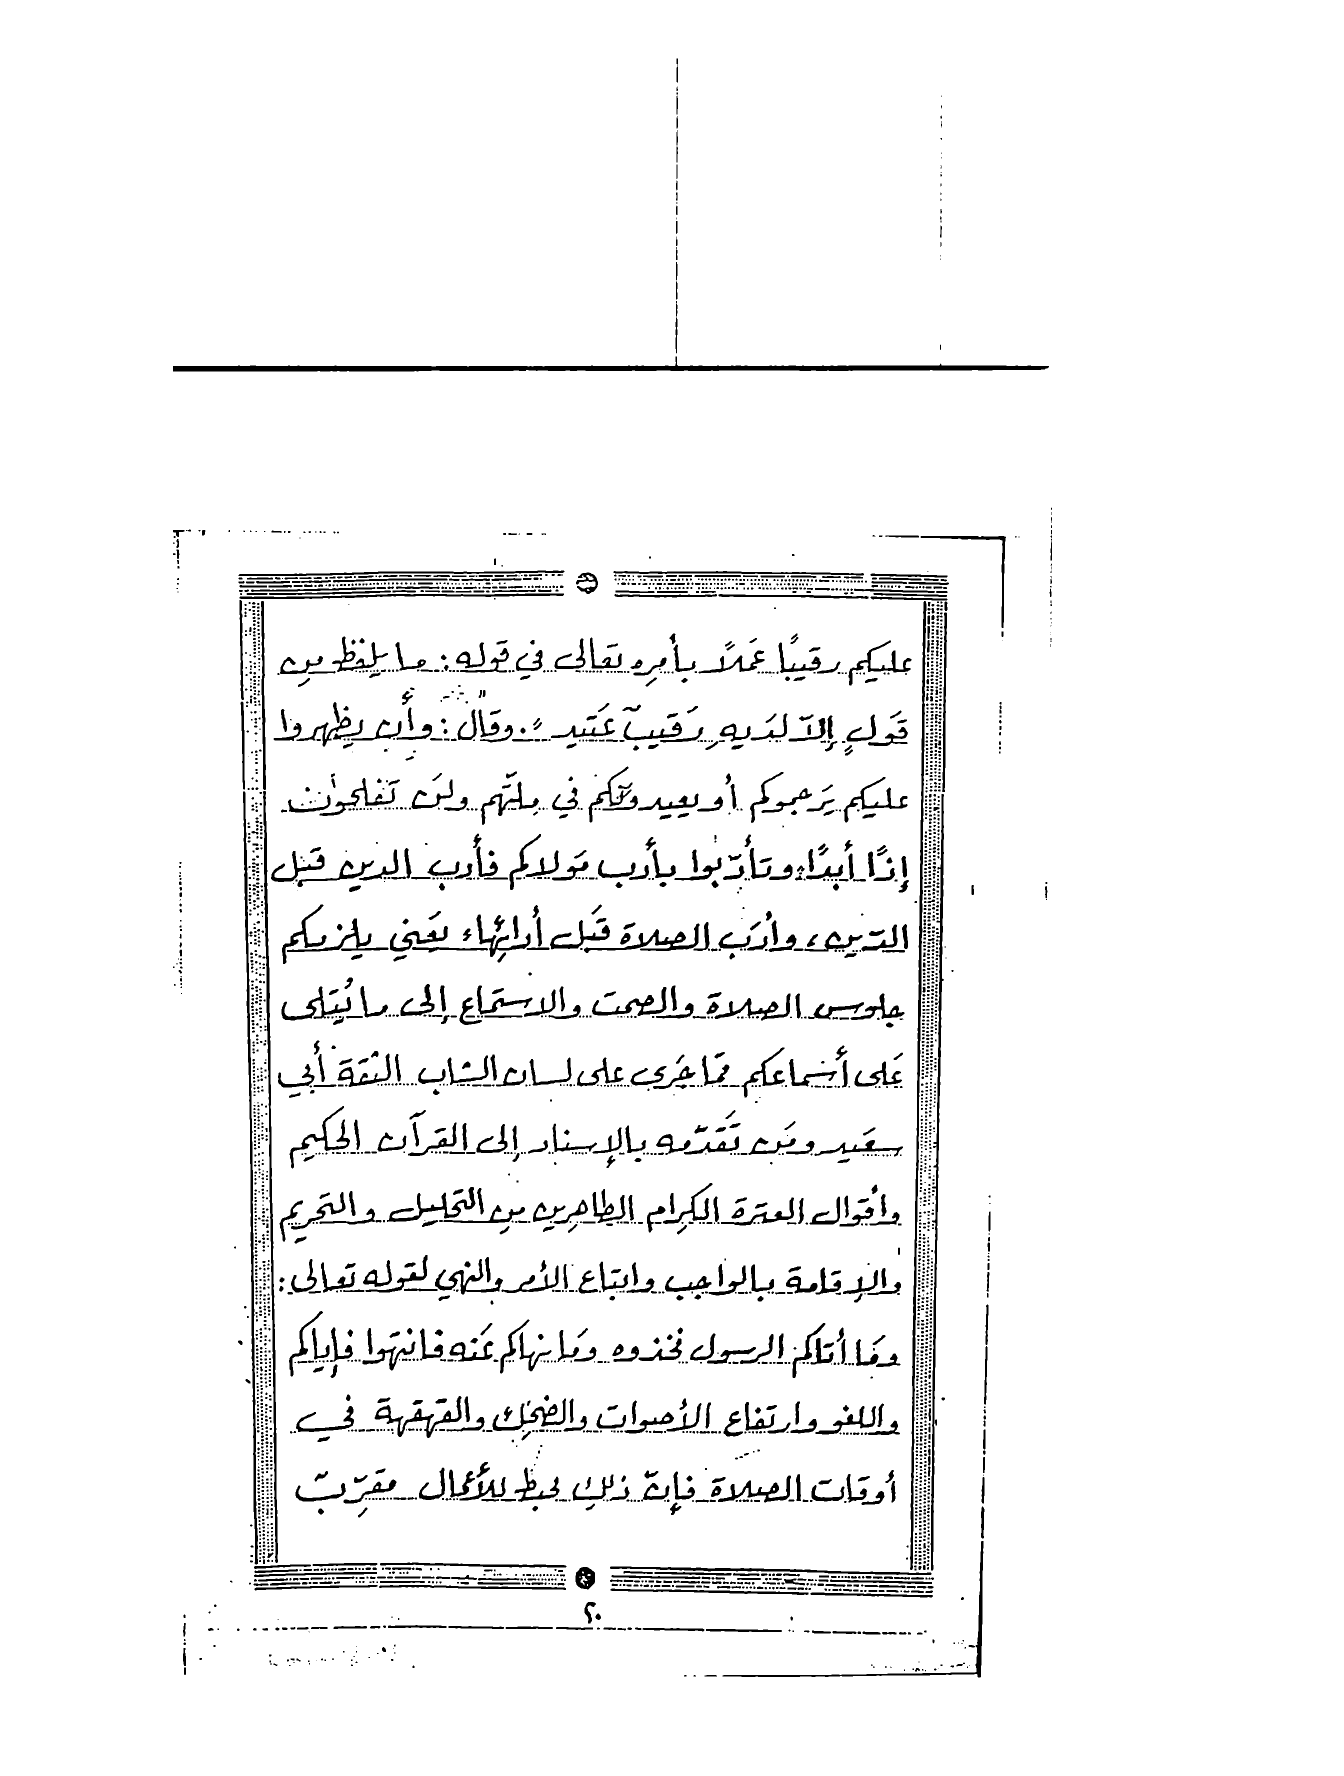 عليكم رقيبًا عَمَلاً بأمرِه تعالى في قوله: ما يلفظ مِن
قَولٍ إلاّ لدَيهِ رَقيبٌ عَتيد". وقال: "وأن يظهروا
عليكم يَرجموكم أو يعيدوكم في مِلّتهم ولَن تَفلحوا
إذًا أبدًا" وتأدّبوا بأدب مَولاكم فأدب الدين قبل
الدّين، وأدَب الصلاة قَبل أدائِها، يَعني يلزمكم
جلوس الصلاة والصمت والاستماع إلى ما يُتلى
عَلى أسماعكم ممّا جَرى على لسان الشاب الثقة أبي
سعَيد ومَن تَقَدّمه بالإسناد إلى القرآن الحكيم
وأقوال العترة الكِرام الطاهرين مِن التحليل والتحريم
والإقامة بالواجب واتباع الأمر والنهي لقوله تعالى:
ومَا أتاكم الرسول فخذوه ومَا نهاكم عَنه فانتهَوا فإياكم
واللغو وارتفاع الأصوات والضَحِك والقهقهة في
أوقات الصلاة فإنّ ذلك محبط للأعمال مقرِّبٌ
٢٠